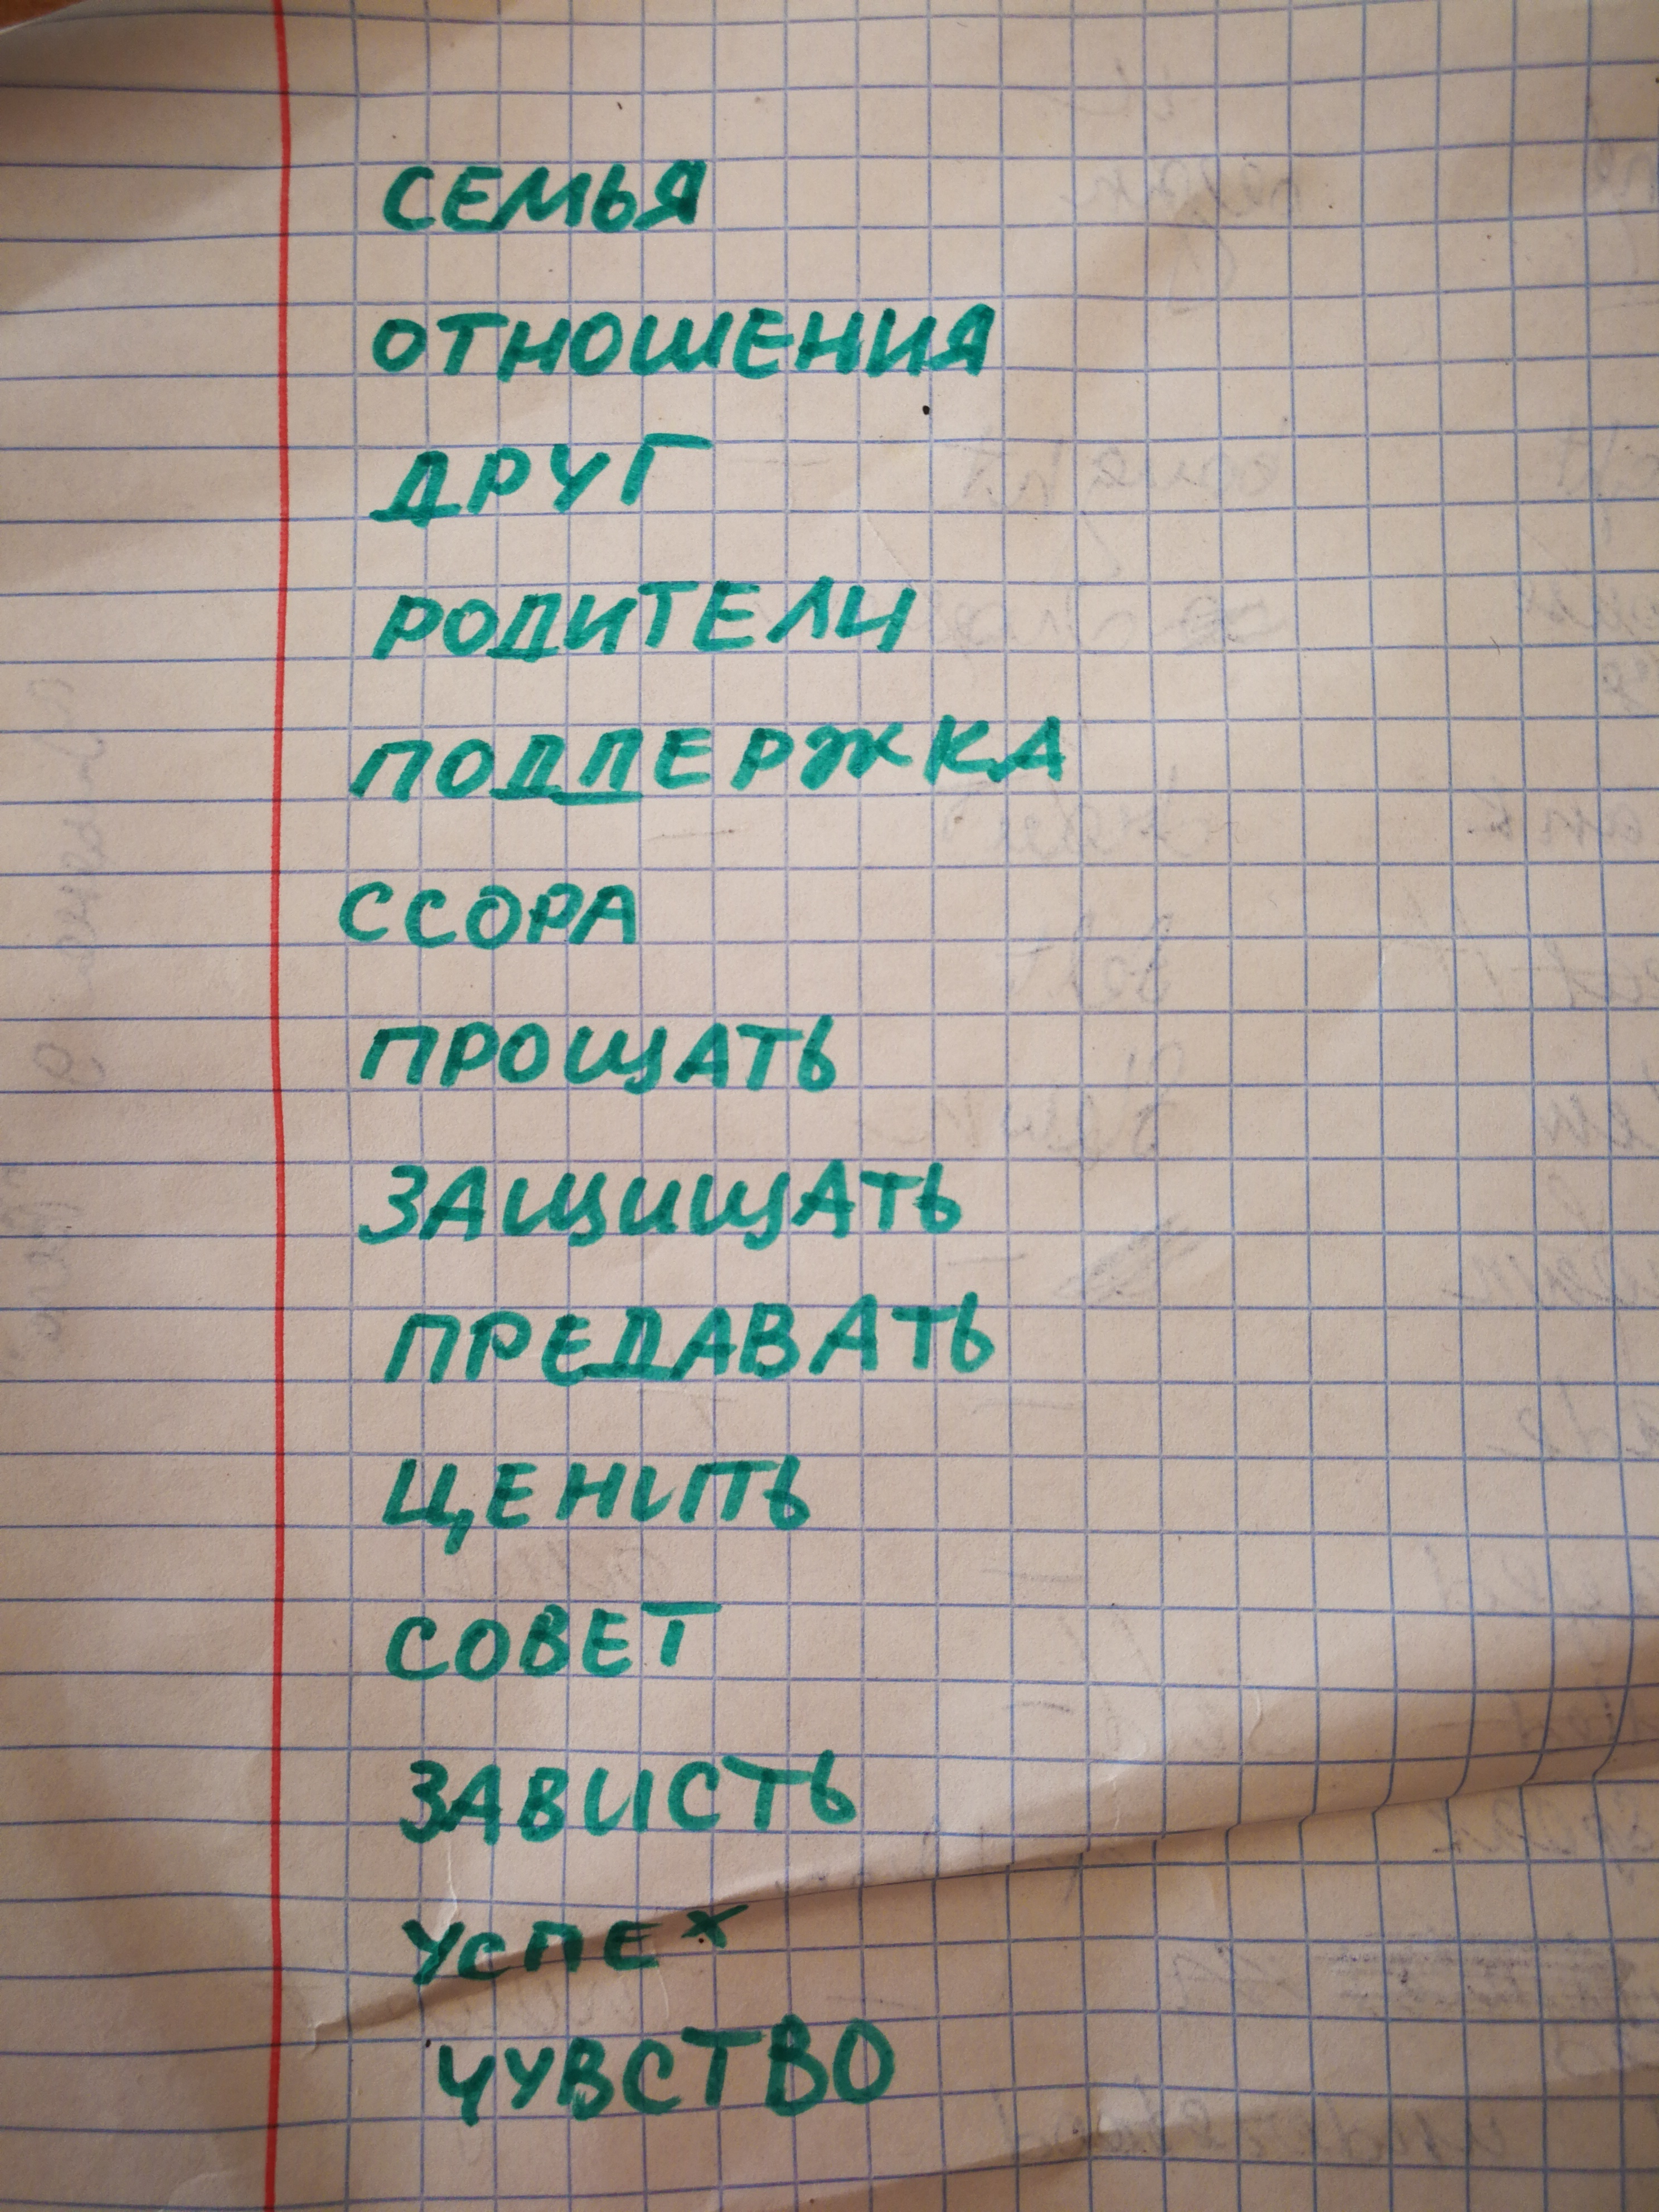 СЕМЬЯ
ОТНОШЕНИЯ
ДРУГ
РОДИТЕЛИ
ПОДДЕРЖКА
ССОРА
ПРОЩАТЬ
ЗАЩИЩАТЬ
ПРЕДАВАТЬ
ЦЕНИТЬ
СОВЕТ
ЗАВИСТЬ
УСПЕХ
ЧУВСТВО